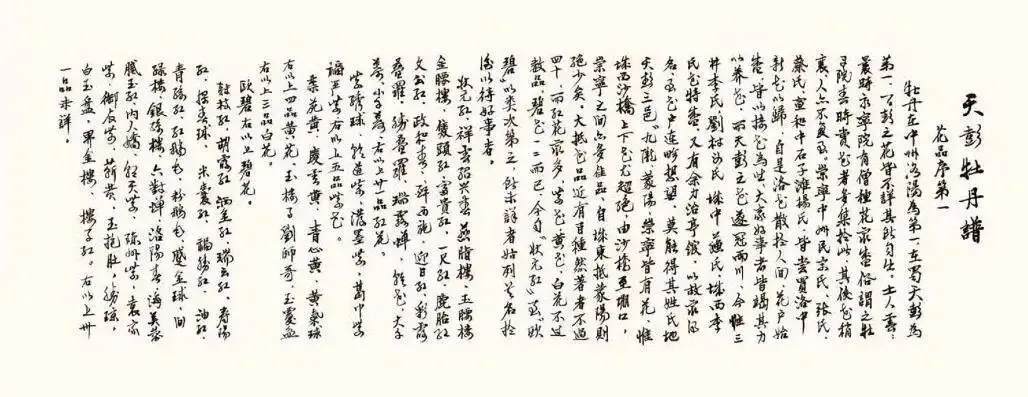 天彭牡丹譜
花品序第一
牡丹在中州洛陽為第一在蜀天彭為
第一。天彭之花皆不詳其所自出。土人云：
曩時永寧院有僧種花最盛俗謂之牡
丹院春時賞花者多集於此其後花稍
衰人亦不復至。崇寧中州民宋氏、張氏、
蔡氏，宣和中石子灘楊氏，皆嘗買洛中
新花以歸，自是洛花散於人間，花戶始
盛皆以接花為業大家好事者皆竭其力
以養花，而天彭之花遂冠兩川，今惟三
井李氏，劉村毋氏，城中蘇氏，城西李
氏花特盛，又有余力治亭館，以故最得
名，至花戶連畛相望，莫能得其姓氏地
天彭三邑九隴濛陽，崇寧皆有花，惟
城西沙橋上下花尤超絕，由沙橋至堋口，
崇寧之間亦多佳品，自城東抵濛陽則
絕少矣。大抵花品近百種然著者不過
四十，而紅花最多，紫花黃花，白花不過
數品，碧花一二而已，今自狀元紅至歐
碧以類次第之，所未詳者姑列其名於
後以待好事者。
狀元紅，祥雲紹興春，燕脂樓，玉腰樓
金腰樓，雙頭紅，富貴紅，一尺紅，鹿胎紅
文公紅，政和春，醉西施，迎日紅，彩霞
疊羅，勝疊羅，瑞露蟬，乾花，大千
葉，小千葉，右以上廿一品紅花。
紫繡球，乾道紫，潑墨紫，葛巾紫
福嚴紫右以上五品紫花。
禁苑黃，慶雲黃，青心黃，黃氣球
右以上四品黃花，玉樓子劉師哥，玉覆盂
右以上三品白花。
歐碧右以上碧花。
轉枝紅，朝霞紅，灑金紅，瑞雲紅，壽陽
紅，探春球，米囊紅，福勝紅，油紅
青絲紅，紅鵝毛，粉鵝毛，蹙金球，間
綠樓，銀絲樓，六對蟬，洛陽春，海芙蓉
膩玉紅，內人嬌，朝天紫，陳州紫，袁家
紫，御衣黃，靳黃，玉抱肚，勝瓊，
白玉盤，界金樓，樓子紅，右以上卅
一品未詳。